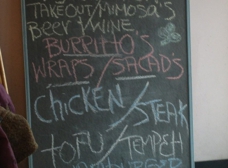 TAKEOUT/MIMOSA'S
BEER/WINE
BURRITO'S
WRAPS/SALADS
CHICKEN/STEAK
TOFU/TEMPEH